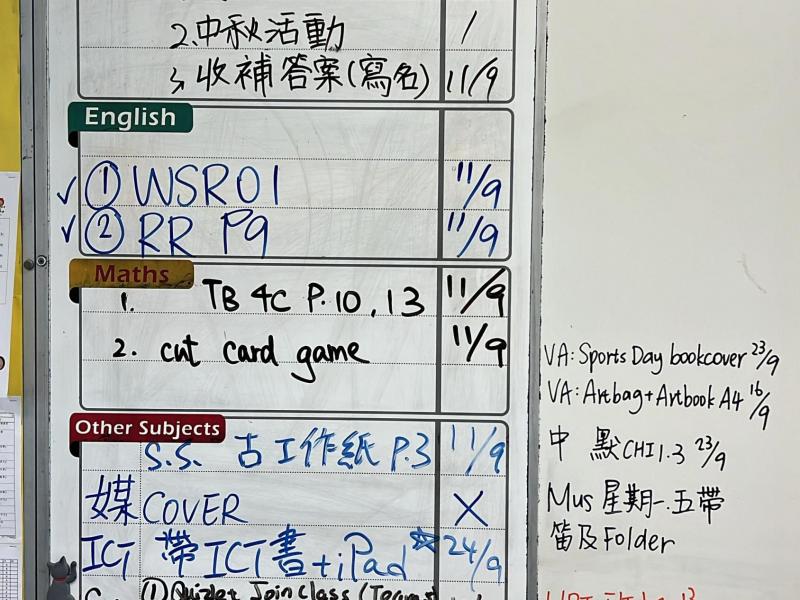 2.中秋活動 /
3.收補答案(寫名) 11/9
English
✓ ① WSR01 11/9
✓ ② RR P9 11/9
Maths
1. TB 4C P.10, 13 11/9
2. cut card game 11/9
Other Subjects
S.S. 古工作紙 P.3 11/9
媒 COVER X
ICT 帶ICT書+iPad☆ 24/9
① Quizlet Join Class (Teams)
VA: Sports Day bookcover 23/9
VA: Artbag+Artbook A4 16/9
中 默 CHI 1.3 23/9
Mus 星期一.五帶
笛及Folder